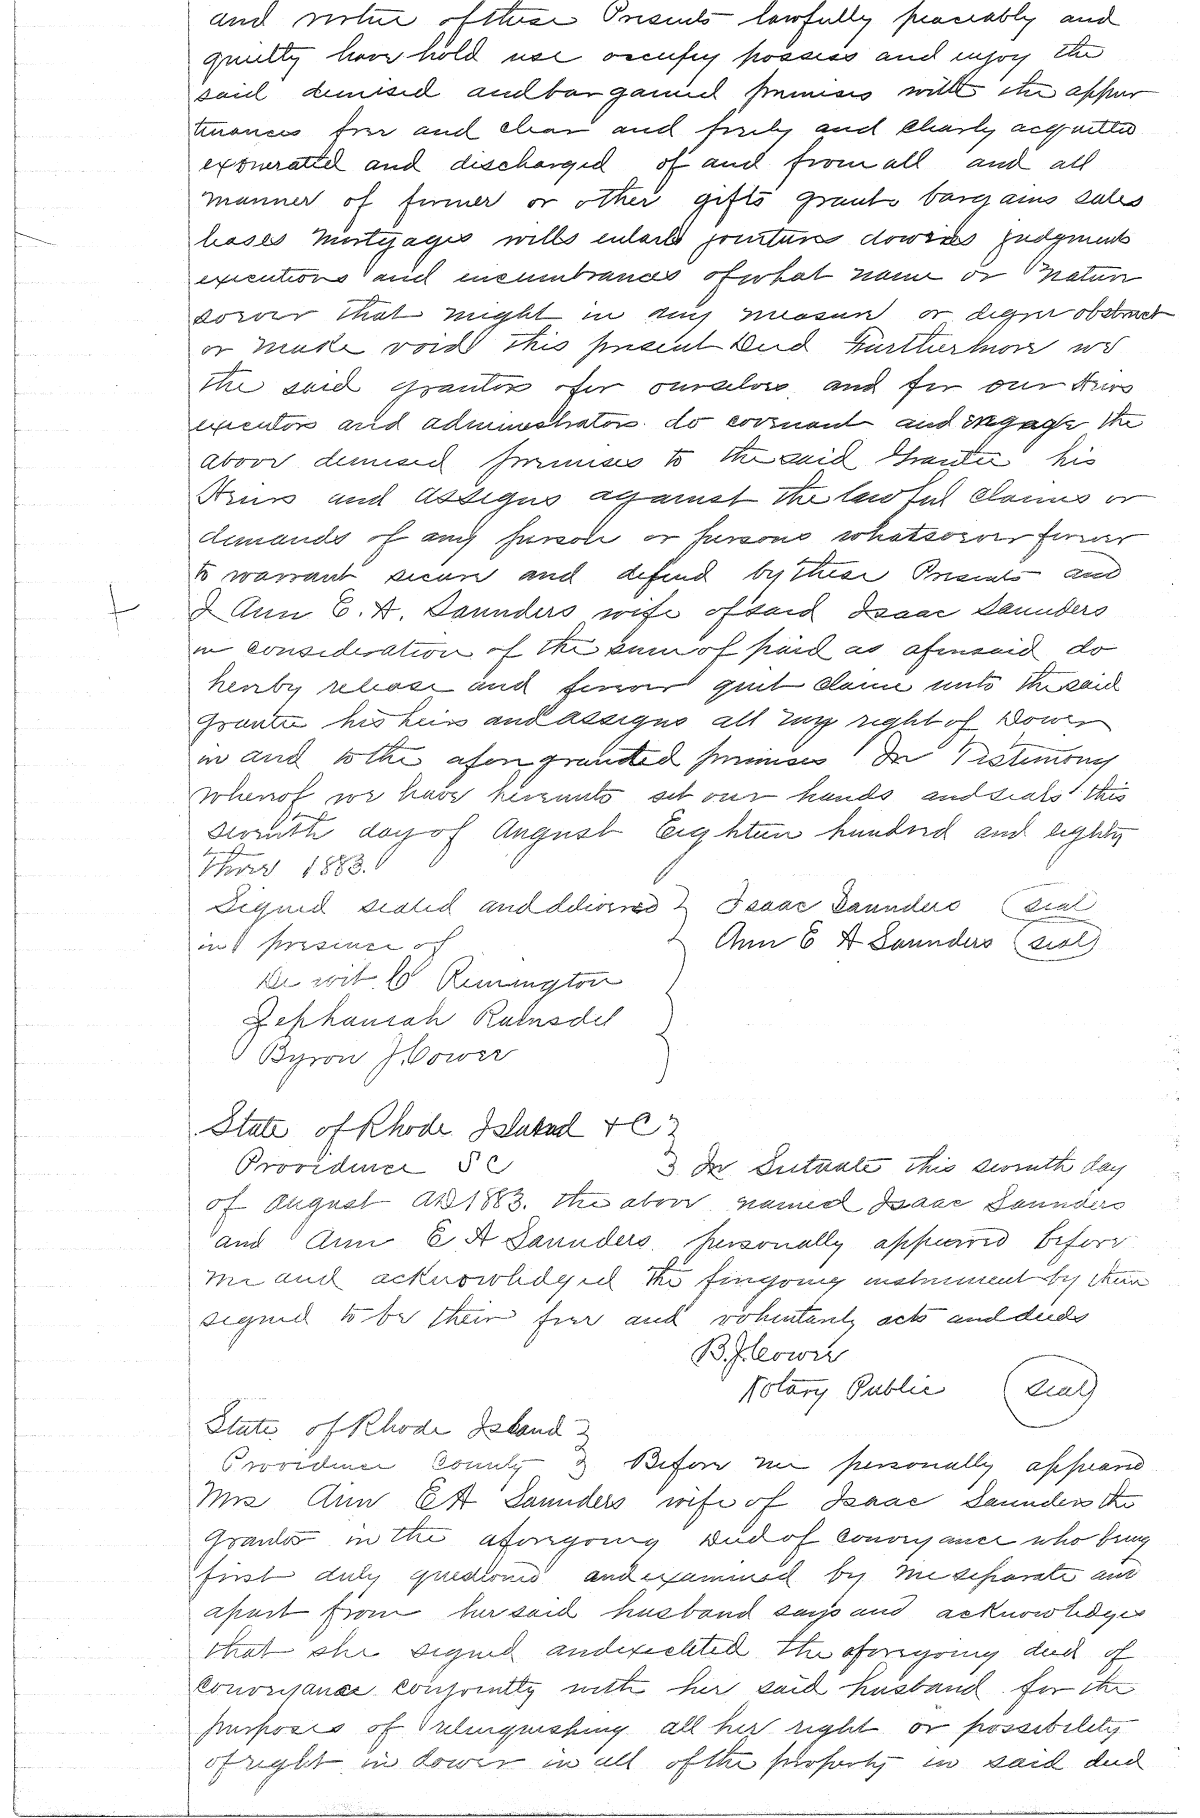 and virtue of these Presents lawfully peaceably and
quietly have hold use occupy possess and enjoy the
said demised and bargained premises with the appur
tenances free and clear and freely and clearly acquitted
exonerated and discharged of and from all and all
manner of former or other gifts grants bargains sales
leases Mortgages wills entails jointures dowries judgments
executions and encumbrances of what name or Nature
soever that might in any measure or degree obstruct
or make void this present Deed Furthermore we
the said grantors for ourselves and for our Heirs
executors and administrators do covenant and engage the
above demised premises to the said Grantee his
Heirs and assigns against the lawful claims or
demands of any person or persons whatsoever forever
to warrant secure and defend by these Presents and
I Ann E. A. Saunders wife of said Isaac Saunders
in consideration of the sum of paid as aforesaid do
hereby release and forever quit claim unto the said
Grantee his heirs and assigns all my right of Dower
in and to the afore granted premises In Testimony
whereof we have hereunto set our hands and seals this
seventh day of August Eighteen hundred and eighty
three 1883.
Signed sealed and delivered } Isaac Saunders (seal)
in presence of } Ann E A Saunders (seal)
De wit C Remington
Zephaniah Ramsdel
Byron J. Cower
State of Rhode Island + C }
Providence SC } In Scituate this seventh day
of August AD 1883. the above named Isaac Saunders
and Ann E A Saunders personally appeared before
me and acknowledged the foregoing instrument by them
signed to be their free and voluntary acts and deeds
B. J. Cower
Notary Public (seal)
State of Rhode Island }
Providence County } Before me personally appeared
Mrs Ann E A Saunders wife of Isaac Saunders the
Grantor in the aforegoing Deed of Conveyance who being
first duly questioned and examined by me separate and
apart from her said husband says and acknowledges
that she signed and executed the aforegoing deed of
Conveyance conjointly with her said husband for the
purposes of relinquishing all her right or possibility
of right in dower in all of the property in said deed